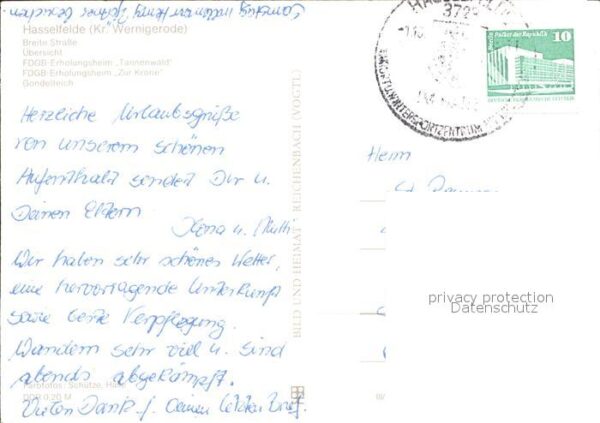 Hasselfelde (Kr. Wernigerode)
Breite Straße
Übersicht
FDGB-Erholungsheim „Tannenwald"
FDGB-Erholungsheim „Zur Krone"
Gondelteich
Herzliche Urlaubsgrüße
von unserem schönen
Aufenthalt sendet Dir u.
Deinen Eltern
Ilona u. Mutti
Wir haben sehr schönes Wetter,
eine hervorragende Unterkunft
sowie Verpflegung.
Wandern sehr viel u. sind
abends abgekämpft.
Vielen Dank f. Deinen letzten Brief.
Farbfotos: Schütze,
DDR 0,20 M
BILD UND HEIMAT REICHENBACH (VOGTL)
HASSELFELDE
372
WINTERSPORTZENTRUM
Palast der Republik
10
Herrn
privacy protection
Datenschutz